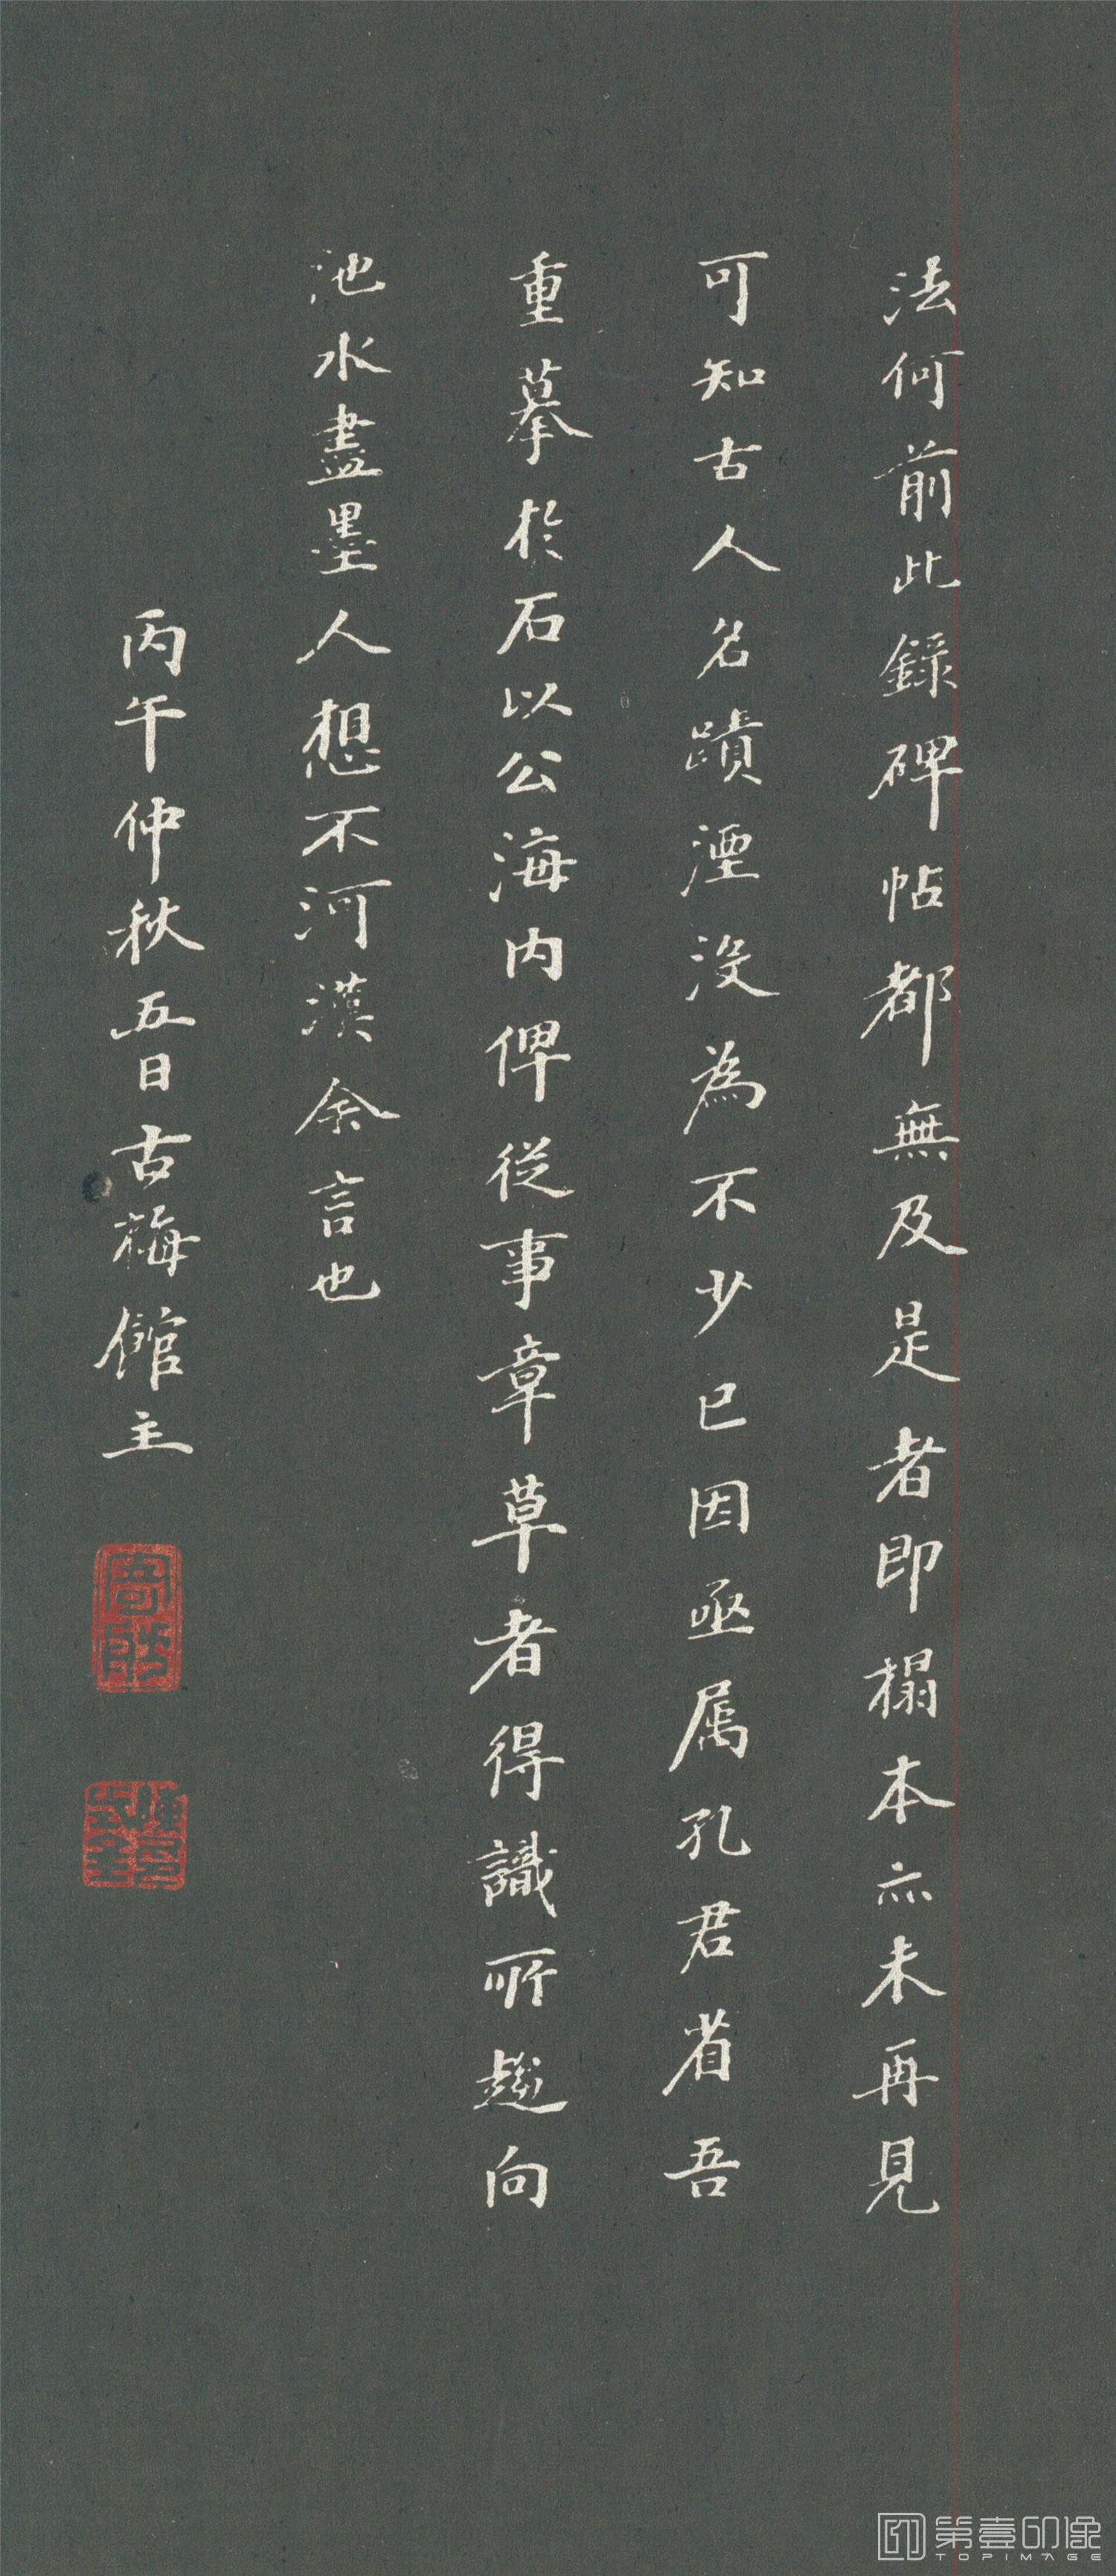 法何前此錄碑帖都無及是者即榻本亦未再見
可知古人名蹟湮没為不少已因亟属孔君省吾
重摹於石以公海内俾從事章草者得識所趨向
池水盡墨人想不河漢余言也
丙午仲秋五日古梅館主
第壹印像
TOPIMAGE